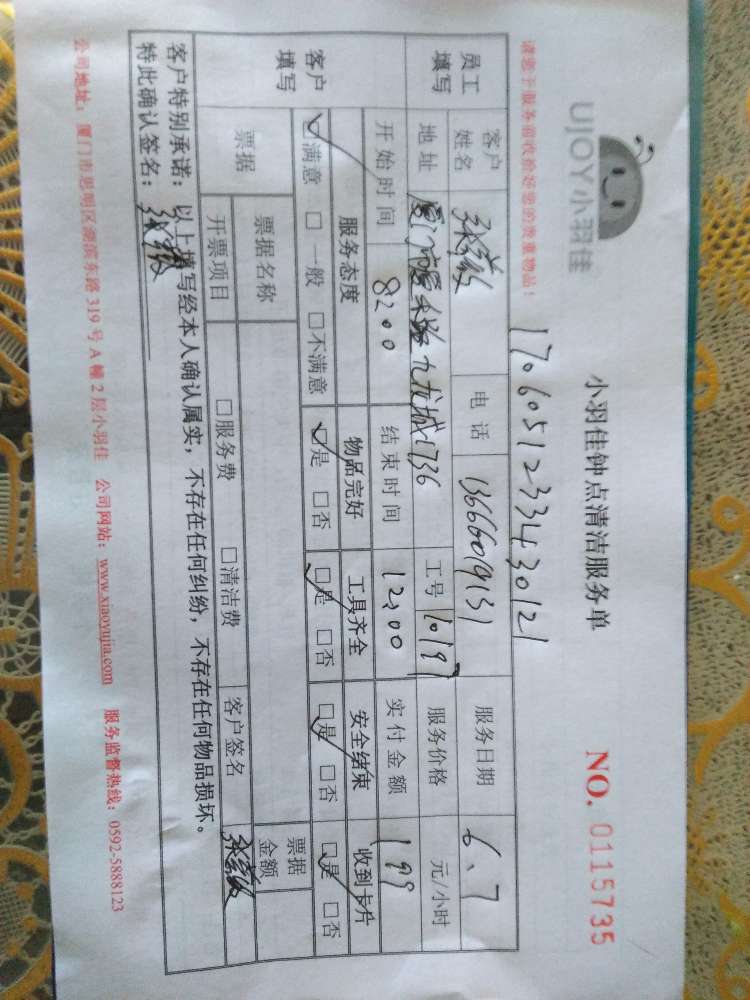 UJOY小羽佳
小羽佳钟点清洁服务单
NO. 0115735
请您于服务前收拾好您的贵重物品!
1706051233430121
员工填写 客户姓名 电话 13666009131 服务日期 6.7
地址 九龙城 736 工号 10197 服务价格 元/小时
开始时间 8:00 结束时间 12:00 实付金额 199
客户填写 服务态度 物品完好 工具齐全 安全结束 收到卡片
☑满意 □一般 □不满意 ☑是 □否 ☑是 □否 ☑是 □否 ☑是 □否
票据 票据名称 票据金额
开票项目 □服务费 □清洁费 客户签名
客户特别承诺:以上填写经本人确认属实,不存在任何纠纷,不存在任何物品损坏。
特此确认签名:
公司地址:厦门市思明区湖滨东路 319 号 A 幢 2 层小羽佳 公司网站:www.xiaoyujia.com 服务监督热线:0592-5888123